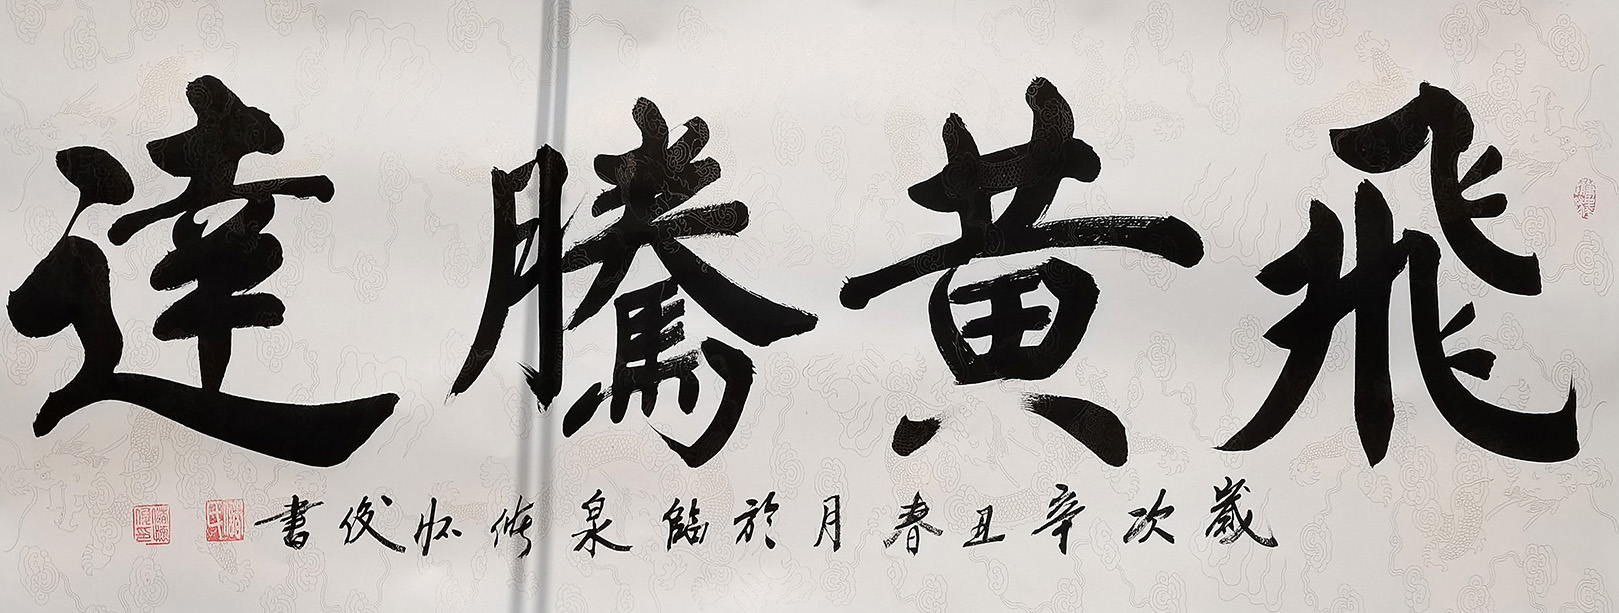 飛黃騰達
歲次辛丑春月於臨泉 俊書